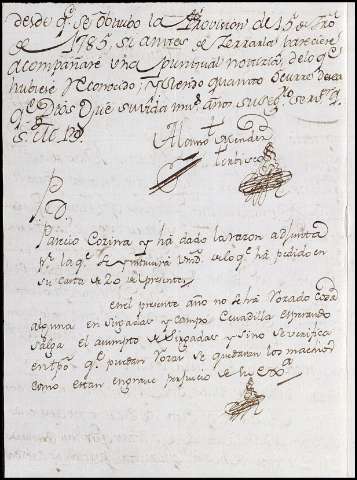 desde q.e se obtubo la Provicion de 15 de
de 1785, si antes de zerrarla pareciere
acompañaré una puntual noticia, delo q.e
hubiese reconocido; y siendo quanto ocurre
q.e Dios Gue su vida m.s años su seg.ro serv.r
Q. S. M. B.
Alonso Mendez
P. D.
Parecio Cozina y há dado la razon adjunta
p.r la q.e se Ynstruirá Vmd. delo q.e há pedido en
su carta de 20 del presente,
en el presente año no se há Rozado Coza
alguna en Sirgadas y campo Ceuadilla esperando
salga el asumpto de Sirgadas, y sino severifica
entpô q.e puedan Rozar se quedaran los machos
como estan en grave perjuicio de